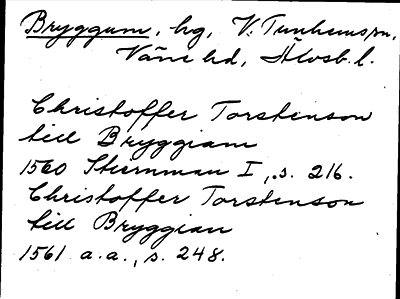 Bryggum, hg, V. Tunhems sn,
Väne hd, Älvsb. l.
Christoffer Torstenson
till Bryggiam
1560 Stiernman I, s. 216.
Christoffer Torstenson
till Bryggian
1561 a.a., s. 248.